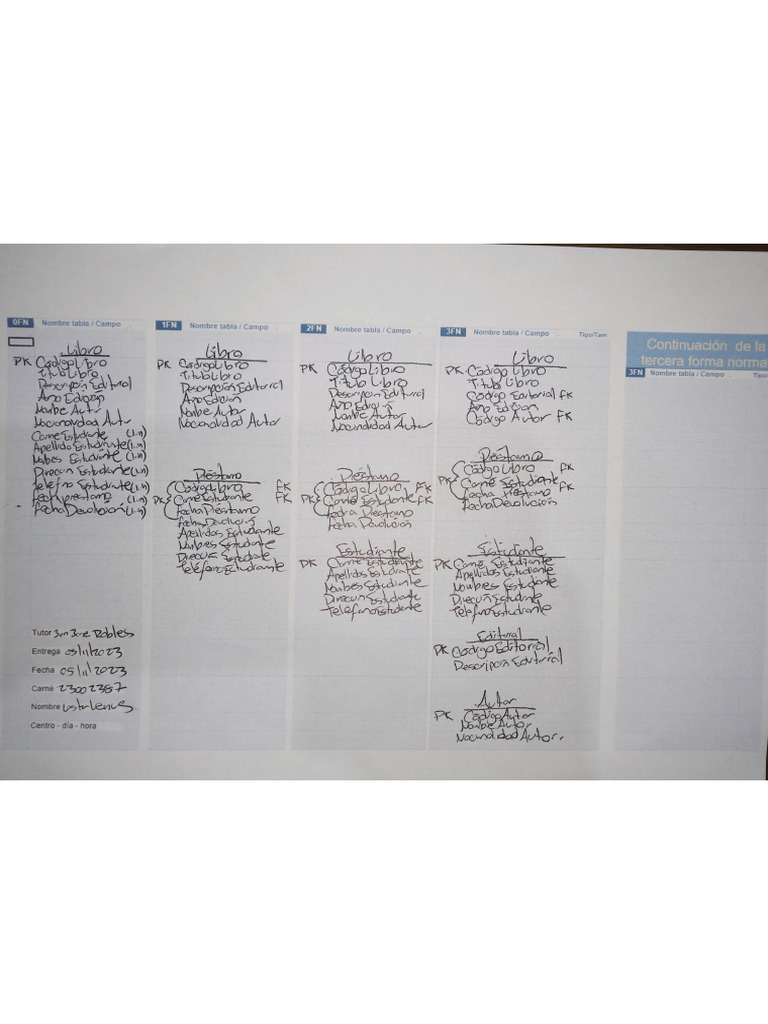 0FN Nombre tabla / Campo
Libro
PK Código Libro
Titulo Libro
Descripción Editorial
Año Edición
Nombre Autor
Nacionalidad Autor
Carne Estudiante (1.n)
Apellido Estudiante (1.n)
Nombres Estudiante (1.n)
Dirección Estudiante (1.n)
Telefno Estudiante (1.n)
Fecha prestamo (1.n)
Fecha Devolución (1.n)
Tutor Jose Robles
Entrega 05/11/2023
Fecha 05/11/2023
Carné 23002387
Nombre
Centro - día - hora
1FN Nombre tabla / Campo
Libro
PK Código Libro
Titulo Libro
Descripción Editorial
Año Edición
Nombre Autor
Nacionalidad Autor
Préstamo
Código Libro FK
PK Carne Estudiante FK
Fecha Préstamo
Fecha Devolución
Apellidos Estudiante
Nombres Estudiante
Dirección Estudiante
Teléfono Estudiante
2FN Nombre tabla / Campo
Libro
PK Código Libro
Titulo Libro
Descripcion Editorial
Año Edición
Nombre Autor
Nacionalidad Autor
Préstamo
Código Libro FK
PK Carne Estudiante FK
Fecha Préstamo
Fecha Devolución
Estudiante
PK Carne Estudiante
Apellidos Estudiante
Nombres Estudiante
Dirección Estudiante
Telefno Estudiante
3FN Nombre tabla / Campo Tipo/Tam
Libro
PK Código Libro
Titulo Libro
Código Editorial FK
Año Edición
Código Autor FK
Préstamo
Código Libro FK
PK Carne Estudiante FK
Fecha Préstamo
Fecha Devolución
Estudiante
PK Carne Estudiante
Apellidos Estudiante
Nombres Estudiante
Dirección Estudiante
Telefno Estudiante
Editorial
PK Código Editorial
Descripcion Editorial
Autor
PK Código Autor
Nombre Autor
Nacionalidad Autor.
Continuación de la
tercera forma norma
3FN Nombre tabla / Campo Tipo